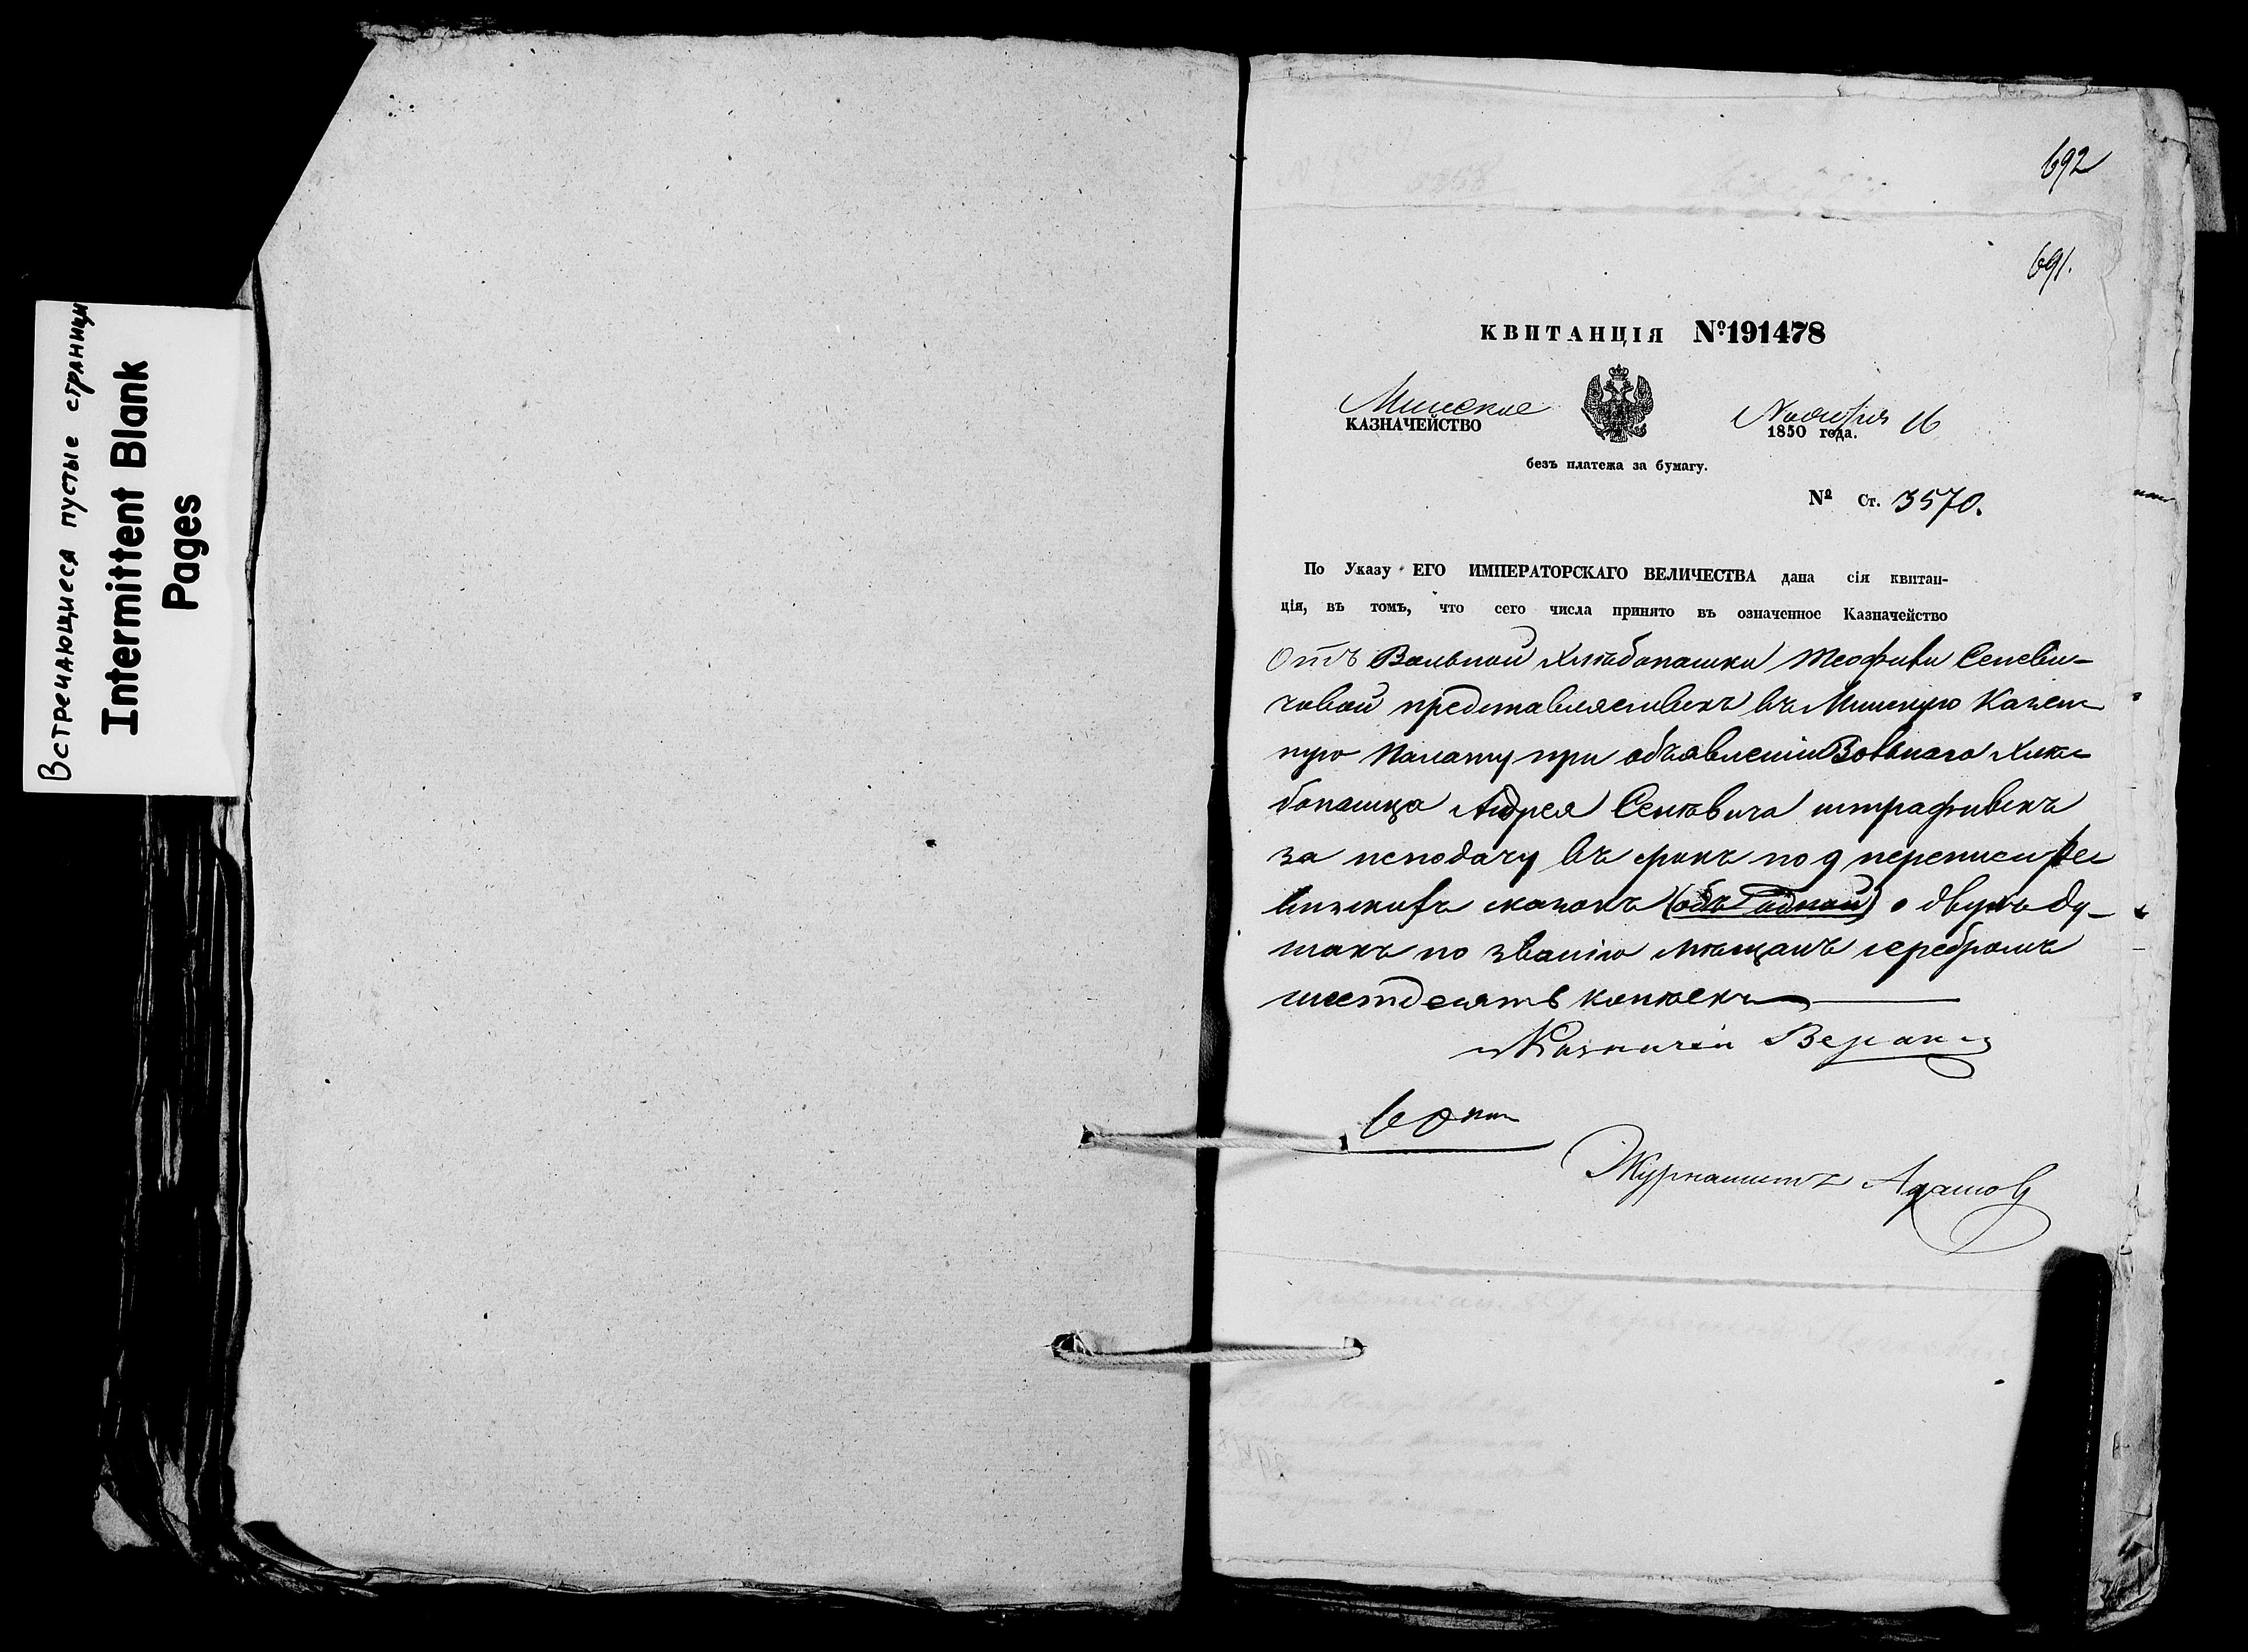 Встречающиеся пустые страницы
Intermittent Blank
Pages
692
691.
КВИТАНЦІЯ №191478
Минское
КАЗНАЧЕЙСТВО
Ноября 16
1850 года.
безъ платежа за бумагу.
№ Ст. 3570.
По Указу ЕГО ИМПЕРАТОРСКАГО ВЕЛИЧЕСТВА дана сія квитан-
ція, въ томъ, что сего числа принято въ означенное Казначейство
Отъ Вольной Хлѣбопашки Теофили
човой представляемыхъ въ Минскую Казен
ную Палату при объявленіи Вольнаго Хлѣ
бопашца Андрея Сенкевича штрафныхъ
за неподачу въ срокъ по 9 переписи Ре
визскихъ сказокъ (объ одной) о двухъ ду-
шахъ по званію мѣщанъ серебромъ
шестдесятъ копѣекъ
Казначей
60 коп
Журналистъ